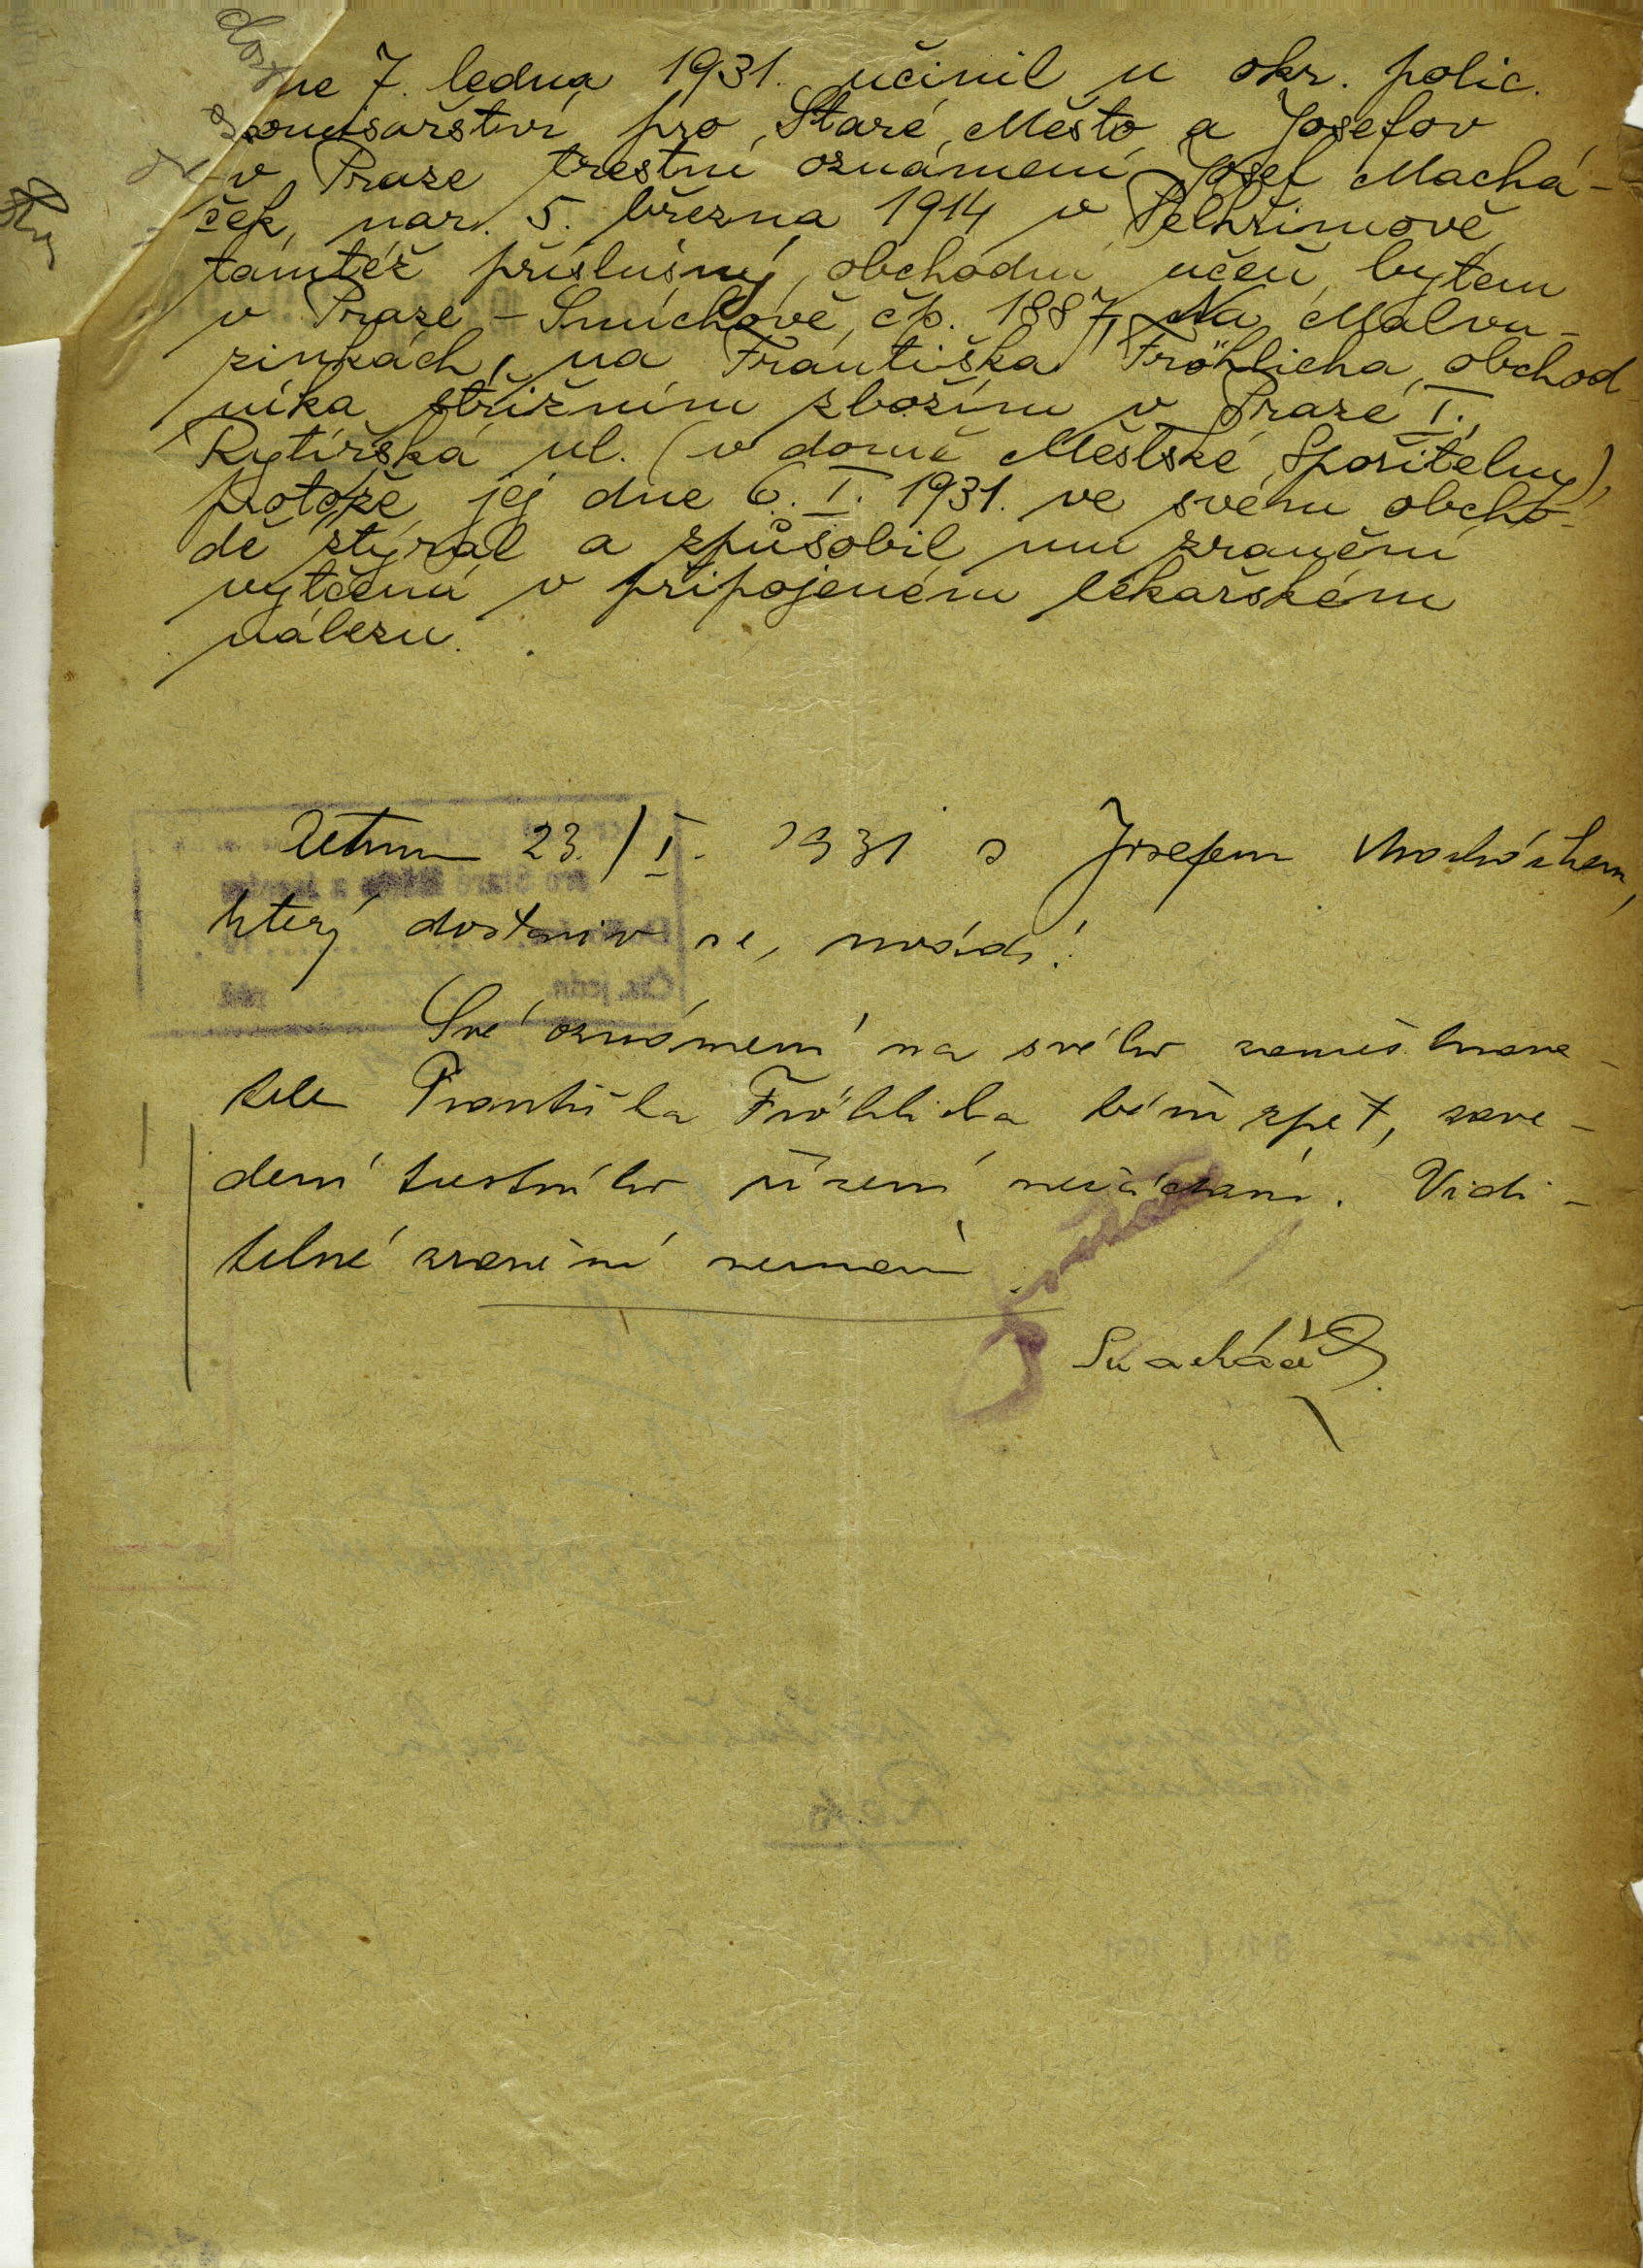 Dne 7. ledna 1931. učinil u okr. polic.
komisařství pro Staré Město a Josefov
v Praze trestní oznámení Josef Machá-
ček, nar. 5. března 1914 v Pelhřimově,
tamtéž příslušný, obchodní učeň, bytem
v Praze - Smíchově, čp. 1887, Na Malva-
zinkách, na Františka Fröhlicha, obchod-
níka střižním zbožím v Praze I.,
Rytířská ul. (v domě Městské Spořitelny),
protože jej dne 6. I. 1931. ve svém obcho-
dě ztýral a způsobil mu zranění
vytčená v připojeném lékařském
nálezu.
23./I. 1931 s Josefem Macháčkem,
který dostaviv se, uvádí:
Své oznámení na svého zaměstnava-
tele Františka Fröhlicha béřu zpět, zave-
dení trestního řízení nežádám. Vidi-
telné zranění nemám.
Macháček